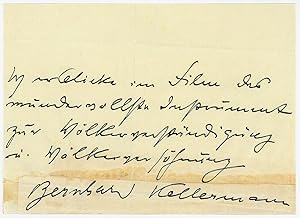 Ich erblicke im Film das
wundervollste Instrument
zur Völkerverständigung
u. Völkerversöhnung
Bernhard Kellermann